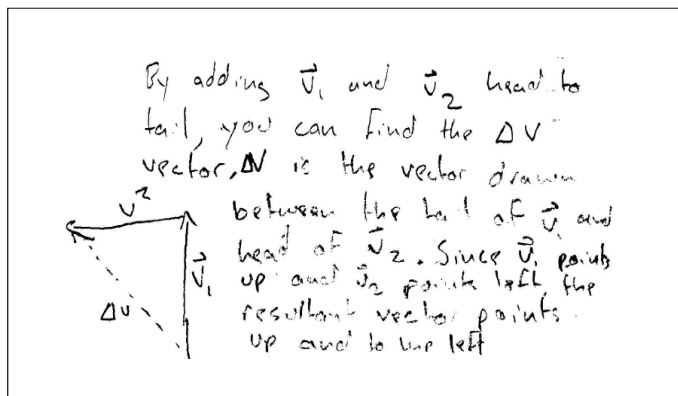 By adding v⃗₁ and v⃗₂ head to
tail, you can find the Δv
vector. Δv is the vector drawn
between the tail of v⃗₁ and
head of v⃗₂. Since v⃗₁ points
up and v⃗₂ points left, the
resultant vector points
up and to the left
v²
v⃗₁
Δv